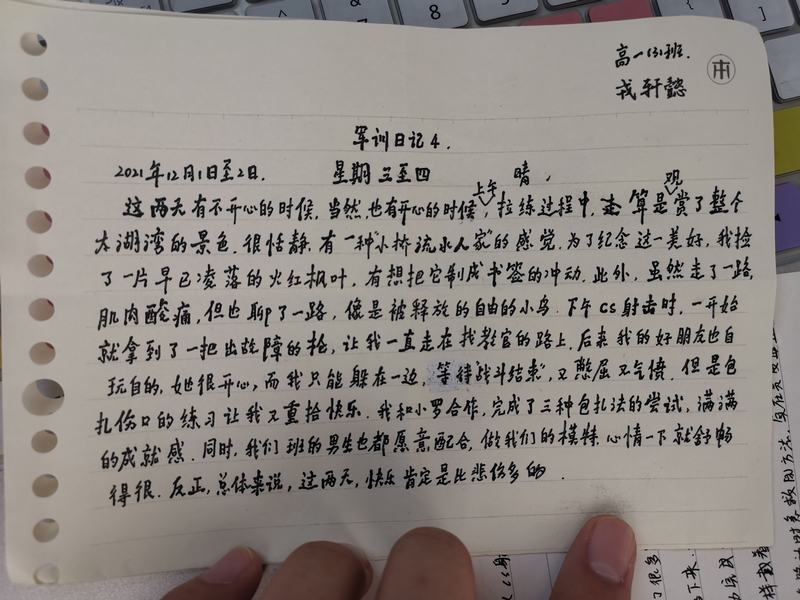 高一(3)班.
戎轩懿
军训日记4.
2021年12月1日至2日. 星期三至四 晴.
这两天有不开心的时候,当然,也有开心的时候,上午拉练过程中,走算是观赏了整个
太湖湾的景色.很恬静,有一种“小桥流水人家”的感觉.为了纪念这一美好,我捡
了一片早已凌落的火红枫叶,有想把它制成书签的冲动.此外,虽然走了一路,
肌肉酸痛,但也聊了一路,像是被释放的自由的小鸟.下午CS射击时,一开始
就拿到了一把出故障的枪,让我一直走在找教官的路上.后来我的好朋友也自
玩自的,她很开心,而我只能躲在一边,“等待战斗结束”,又憋屈又气愤.但是包
扎伤口的练习让我又重拾快乐.我和小罗合作,完成了三种包扎法的尝试,满满
的成就感.同时,我们班的男生也都愿意配合,做我们的模特.心情一下就舒畅
得很.反正,总体来说,这两天,快乐肯定是比悲伤多的.